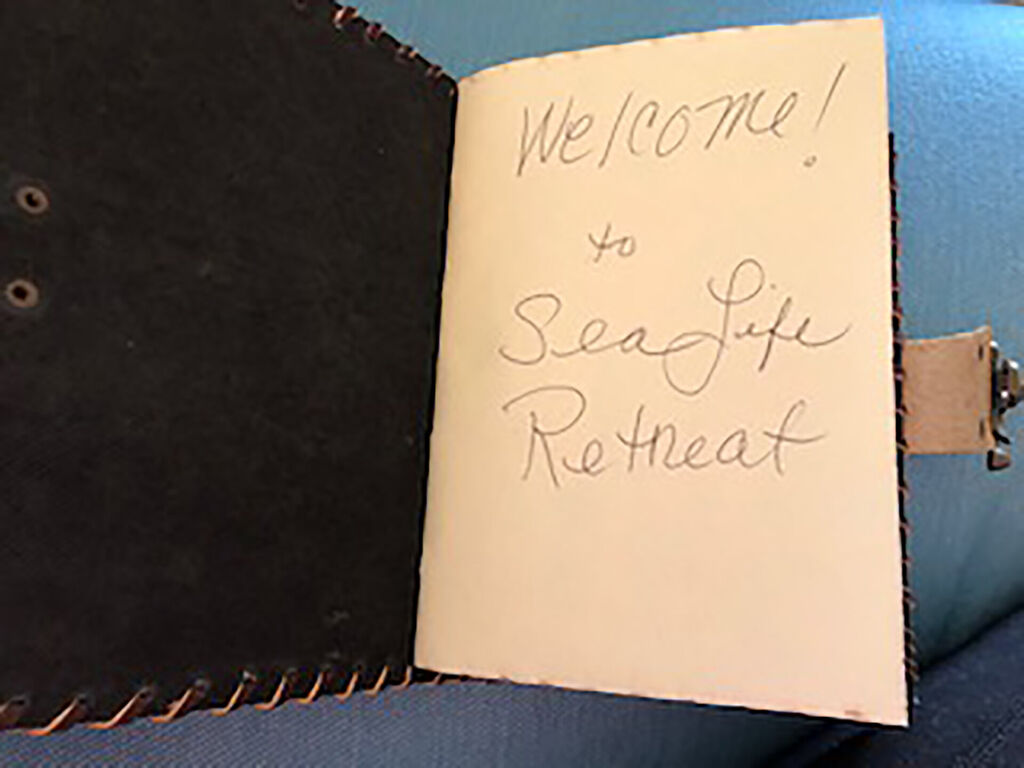 Welcome!
to
Sea Life
Retreat